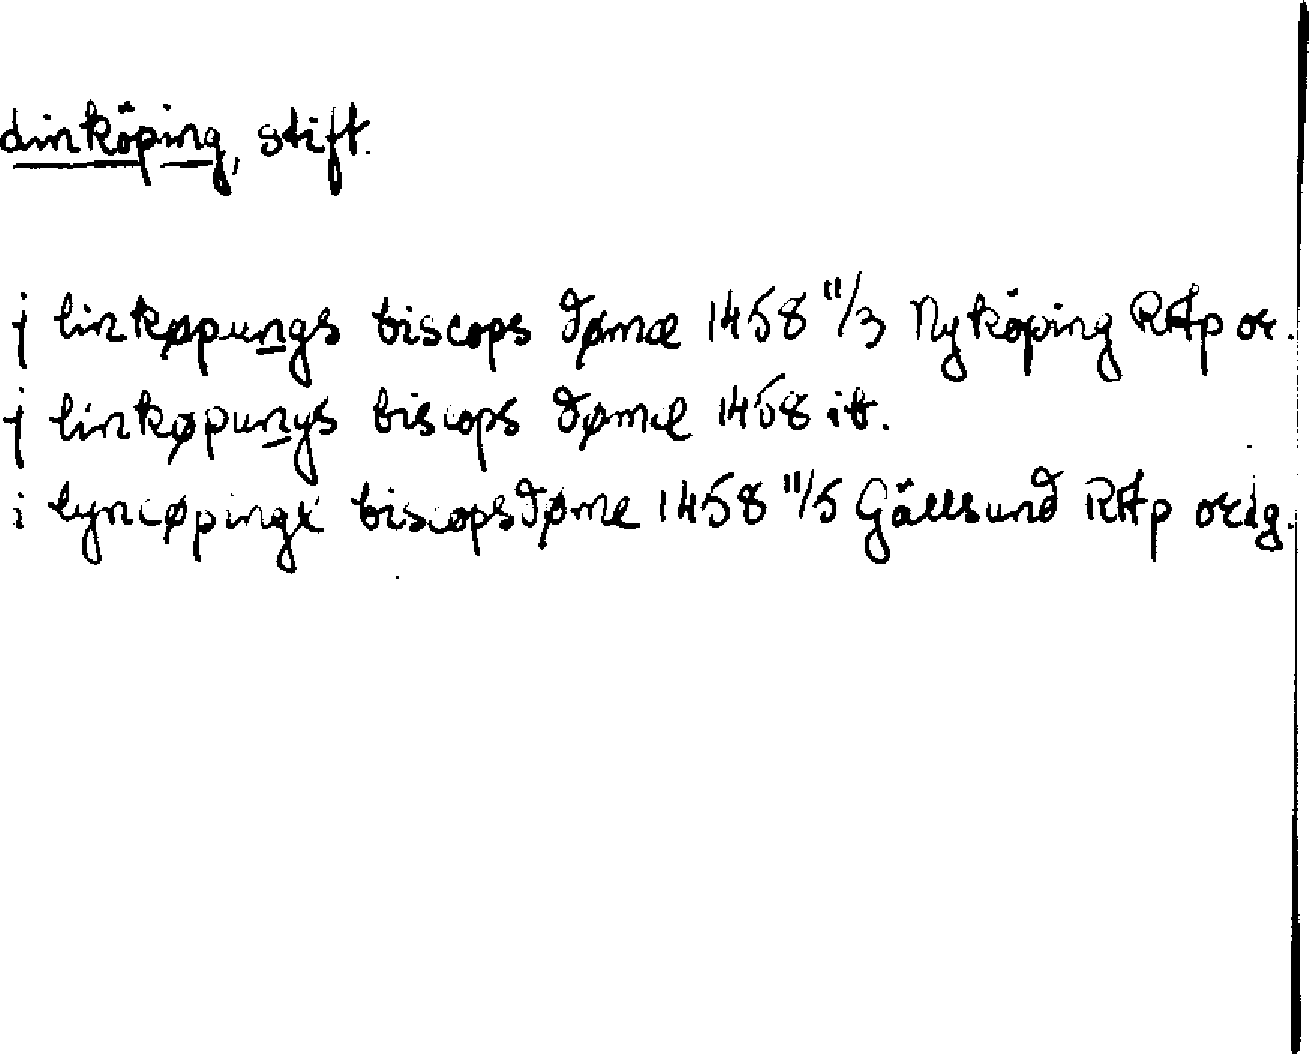 Linköping, stift.
j linkøpungs biscops dømæ 1458 11/3 Nyköping RAp or.
j linkøpungs biscops døme 1458 ib.
i lyncøpingx biscopsdøme 1458 11/5 Gällsund RAp or